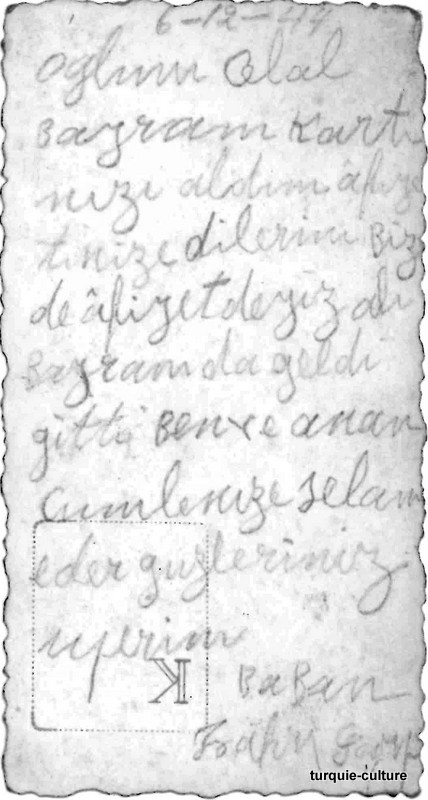 6-12-44
oğlum Celal
Bayram Kartı
nızı aldım âfiye
tinize dilerim Biz
de âfiyetdeyiz
Bayramda geldi
gitti Ben ve anan
Cumlenıze selam
eder guzleriniz
uperim
K
BaBan
turquie-culture